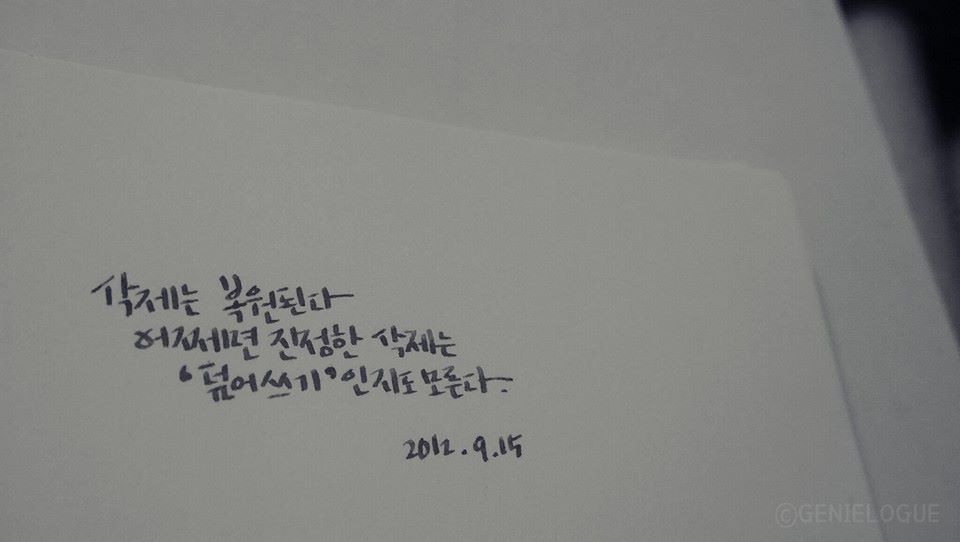 삭제는 복원된다
어쩌면 진정한 삭제는
‘덮어쓰기’인지도 모른다.
2012.9.15
©GENIELOGUE